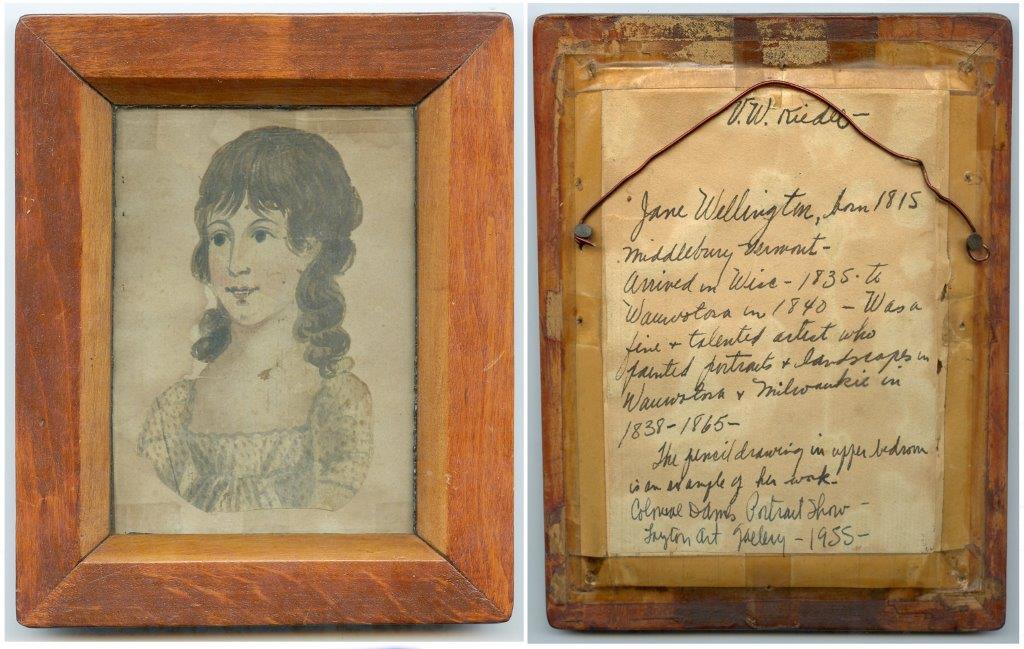 V.W. Riedl-
Jane Wellington, born 1815
Middlebury Vermont-
Arrived in Wisc - 1835. to
Wauwatosa in 1840 - Was a
fine + talented artist who
painted portraits + landscapes in
Wauwatosa + Milwaukie in
1838-1865-
The pencil drawing in upper bedroom
is an example of her work.
Colonial Dames Portrait Show-
Layton Art Gallery - 1955-